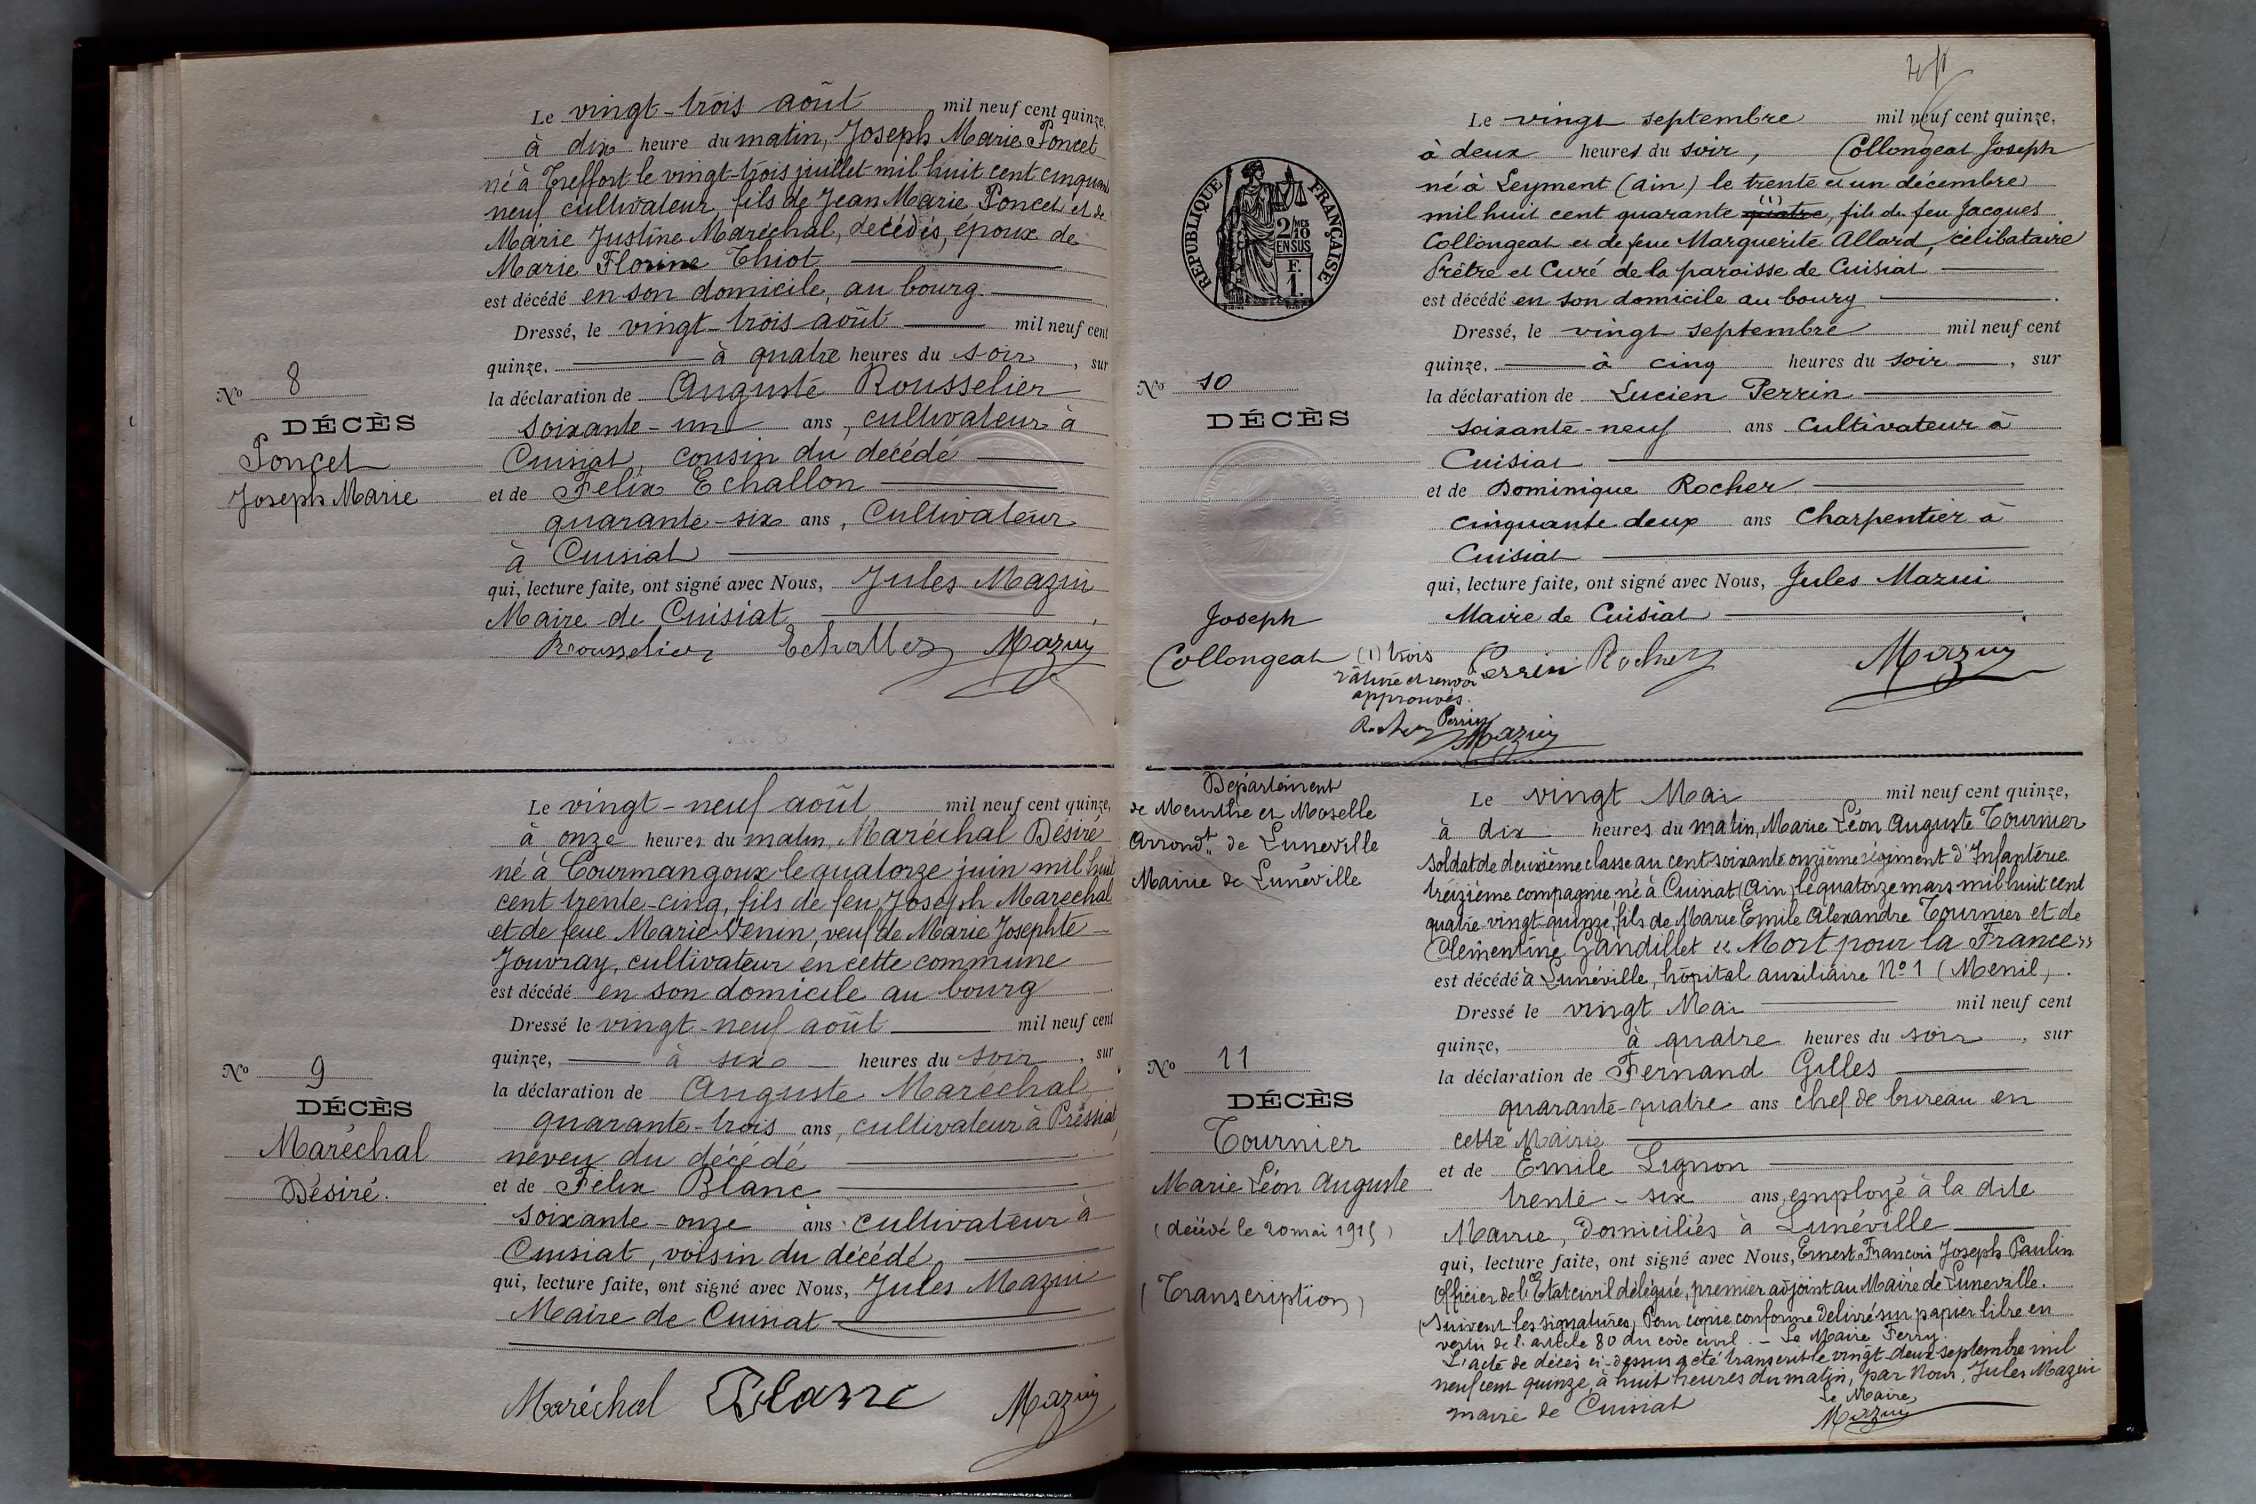 Le vingt-trois août mil neuf cent quinze,
à dix heure du matin, Joseph Marie Poncet
né à Treffort le vingt-trois juillet mil huit cent cinquante
neuf cultivateur, fils de Jean Marie Poncet et de
Marie Justine Maréchal, décédés, époux de
Marie Florine Thiot
est décédé en son domicile, au bourg
Dressé, le vingt-trois août mil neuf cent
quinze, à quatre heures du soir, sur
la déclaration de Auguste Rousselier
soixante-un ans, cultivateur à
Cuisiat, cousin du décédé
et de Felix Echallon
quarante-six ans, Cultivateur
à Cuisiat
qui, lecture faite, ont signé avec Nous, Jules Mazui
Maire de Cuisiat
Rousselier Echallon Mazuy
No 8
DÉCÈS
Poncet
Joseph Marie
Le vingt-neuf août mil neuf cent quinze,
à onze heures du matin, Maréchal Désiré
né à Courmangoux le quatorze juin mil huit
cent trente-cinq, fils de feu Joseph Marechal
et de feue Marie Venin, veuf de Marie Josephte
Jouvray, cultivateur en cette commune
est décédé en son domicile au bourg
Dressé le vingt-neuf août mil neuf cent
quinze, à six heures du soir, sur
la déclaration de Auguste Maréchal
quarante-trois ans, cultivateur à Pressiat,
neveu du décédé
et de Félix Blanc
soixante-onze ans cultivateur à
Cuisiat, voisin du décédé
qui, lecture faite, ont signé avec Nous, Jules Mazui
Maire de Cuisiat
Maréchal Blanc Mazuy
No 9
DÉCÈS
Maréchal
Désiré.
RÉPUBLIQUE FRANÇAISE
2/10
EN SUS
F.
1.
Le vingt septembre mil neuf cent quinze,
à deux heures du soir, Collongeat Joseph
né à Leyment (Ain) le trente et un décembre
mil huit cent quarante quatre (1), fils de feu Jacques
Collongeat et de feue Marguerite Allard, célibataire
Prêtre et Curé de la paroisse de Cuisiat
est décédé en son domicile au bourg
Dressé, le vingt septembre mil neuf cent
quinze, à cinq heures du soir, sur
la déclaration de Lucien Perrin
soixante-neuf ans Cultivateur à
Cuisiat
et de Dominique Rocher
cinquante deux ans Charpentier à
Cuisiat
qui, lecture faite, ont signé avec Nous, Jules Mazui
Maire de Cuisiat
Perrin Rocher Mazuy
No 10
DÉCÈS
Joseph
Collongeat
(1) trois
râture et renvoi
approuvés.
Rocher Perrin Mazuy
Département
de Meurthe et Moselle
Arrondt. de Luneville
Mairie de Lunéville
Le vingt Mai mil neuf cent quinze,
à dix heures du matin, Marie Léon Auguste Tournier
soldat de deuxième classe au cent soixante onzième régiment d'Infanterie
treizième compagnie né à Cuisiat (Ain) le quatorze mars mil huit cent
quatre-vingt-quinze, fils de Marie Emile Alexandre Tournier et de
Clémentine Gandillet « Mort pour la France »
est décédé à Lunéville, hôpital auxiliaire No 1 (Menil)
Dressé le vingt Mai mil neuf cent
quinze, à quatre heures du soir, sur
la déclaration de Fernand Gilles
quarante-quatre ans chef de bureau en
cette Mairie
et de Emile Lignon
trente-six ans, employé à la dite
Mairie, Domiciliés à Lunéville
qui, lecture faite, ont signé avec Nous, Ernest François Joseph Paulin
Officier de l'Etat civil délégué, premier adjoint au Maire de Luneville.
(Suivent les signatures) Pour copie conforme Délivré sur papier libre en
vertu de l'article 80 du code civil. - Le Maire Ferry.
L'acte de décès ci-dessus a été transcrit le vingt-deux septembre mil
neuf cent quinze, à huit heures du matin, par Nous, Jules Mazui
maire de Cuisiat
Le Maire,
Mazuy
No 11
DÉCÈS
Tournier
Marie Léon Auguste
(décédé le 20 mai 1915)
(Transcription)